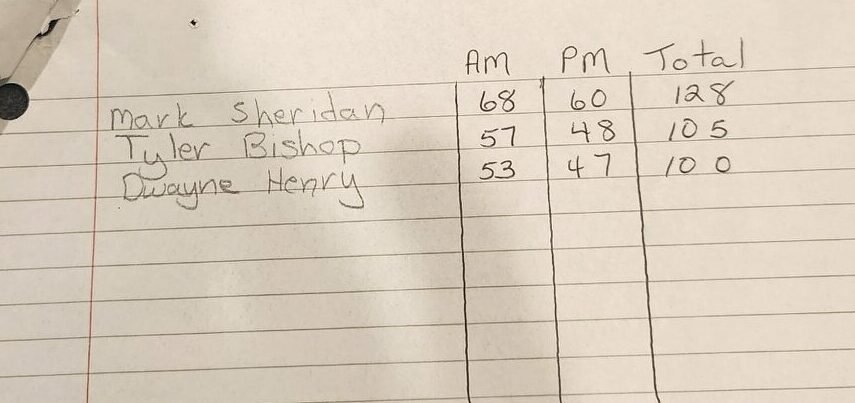 AM PM Total
Mark Sheridan 68 60 128
Tyler Bishop 57 48 105
Dwayne Henry 53 47 100